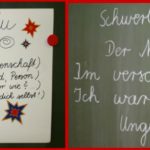 enschaft)
d, Person)
er wie?
dich selbst!)
Schwerl
Der M
Im versc
Ich war
Unge